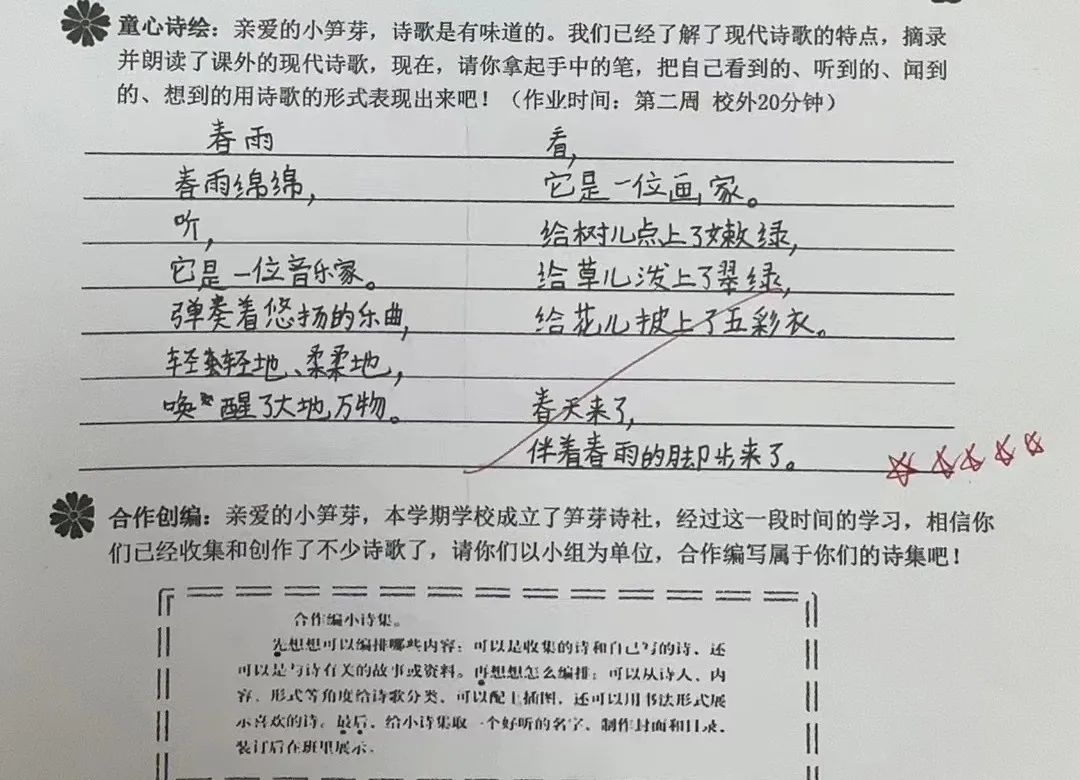 童心诗绘：亲爱的小笋芽，诗歌是有味道的。我们已经了解了现代诗歌的特点，摘录
并朗读了课外的现代诗歌，现在，请你拿起手中的笔，把自己看到的、听到的、闻到
的、想到的用诗歌的形式表现出来吧！（作业时间：第二周 校外20分钟）
春雨
春雨绵绵，
听，
它是一位音乐家。
弹奏着悠扬的乐曲，
轻轻地、柔柔地，
唤醒了大地万物。
看，
它是一位画家。
给树儿点上了嫩绿，
给草儿泼上了翠绿，
给花儿披上了五彩衣。
春天来了，
伴着春雨的脚步来了。
合作创编：亲爱的小笋芽，本学期学校成立了笋芽诗社，经过这一段时间的学习，相信你
们已经收集和创作了不少诗歌了，请你们以小组为单位，合作编写属于你们的诗集吧！
合作编小诗集。
先想想可以编排哪些内容：可以是收集的诗和自己写的诗，还
可以是与诗有关的故事或资料。再想想怎么编排：可以从诗人、内
容、形式等角度给诗歌分类，可以配上插图，还可以用书法形式展
示喜欢的诗。最后，给小诗集取一个好听的名字，制作封面和目录，
装订后在班里展示。